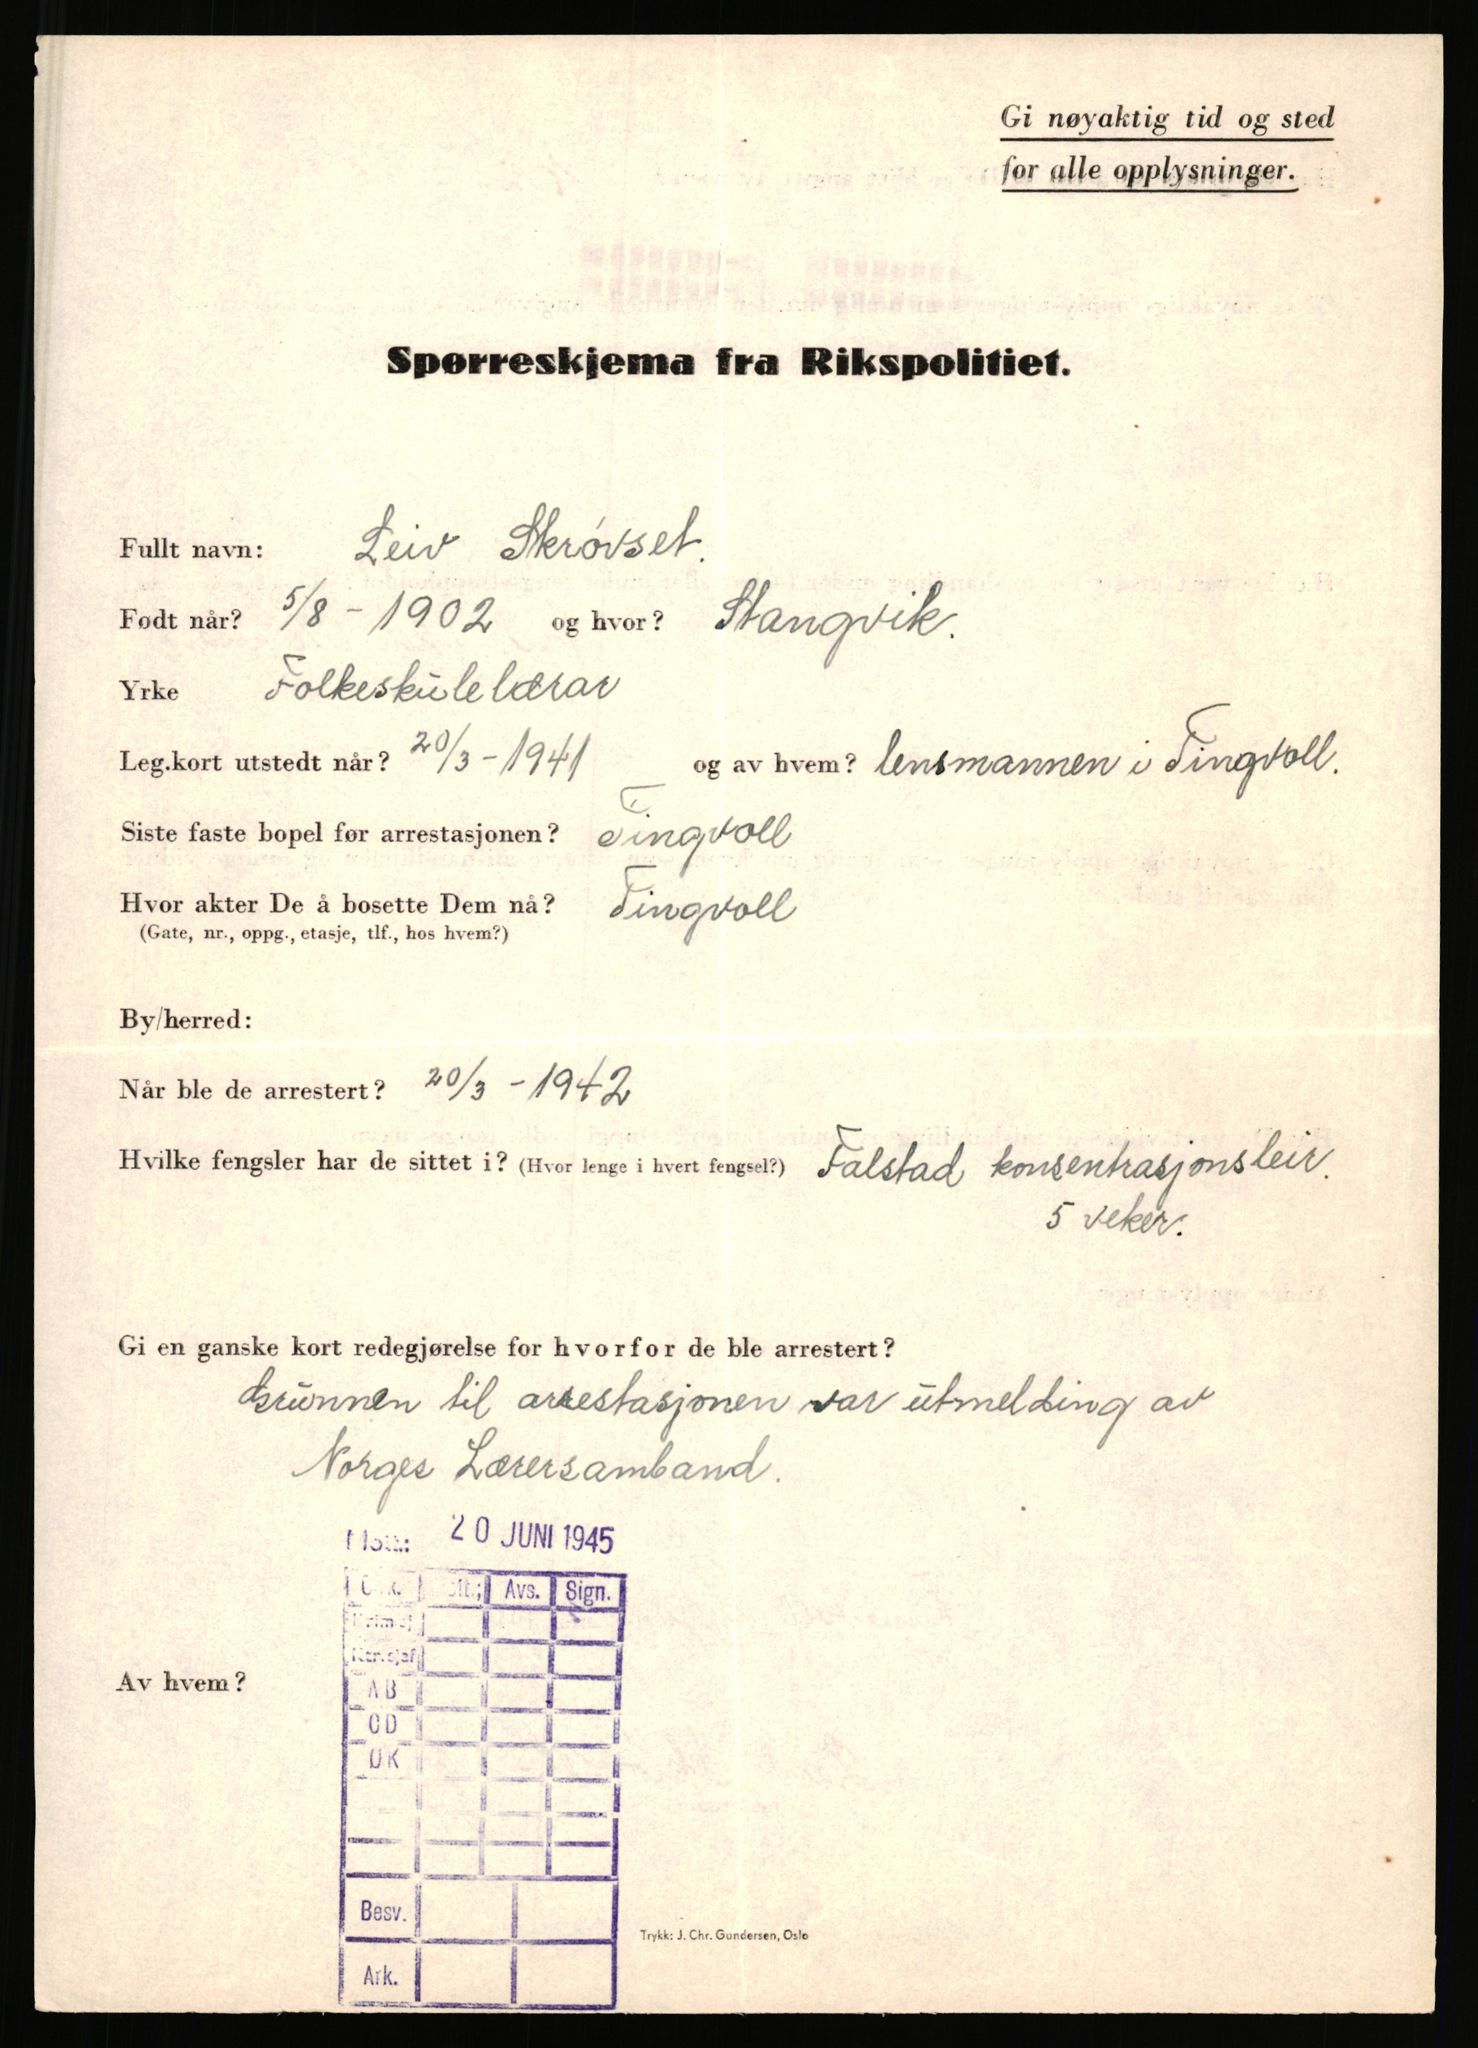 Gi nøyaktig tid og sted
for alle opplysninger.
Spørreskjema fra Rikspolitiet.
Fullt navn: Leiv Skrøvset.
Født når? 5/8 - 1902 og hvor? Stangvik.
Yrke Folkeskulelærar
Leg.kort utstedt når? 20/3 - 1941 og av hvem? lensmannen i Tingvoll.
Siste faste bopel før arrestasjonen? Tingvoll
Hvor akter De å bosette Dem nå? Tingvoll
(Gate, nr., oppg., etasje, tlf., hos hvem?)
By/herred:
Når ble de arrestert? 20/3 - 1942
Hvilke fengsler har de sittet i? (Hvor lenge i hvert fengsel?) Falstad konsentrasjonsleir.
5 veker.
Gi en ganske kort redegjørelse for hvorfor de ble arrestert?
Grunnen til arrestasjonen var utmelding av
Norges Lærersamband.
20 JUNI 1945
Avs. Sign.
AB
Av hvem?
OD
OK
Besv.
Trykk: J. Chr. Gundersen, Oslo
Ark.